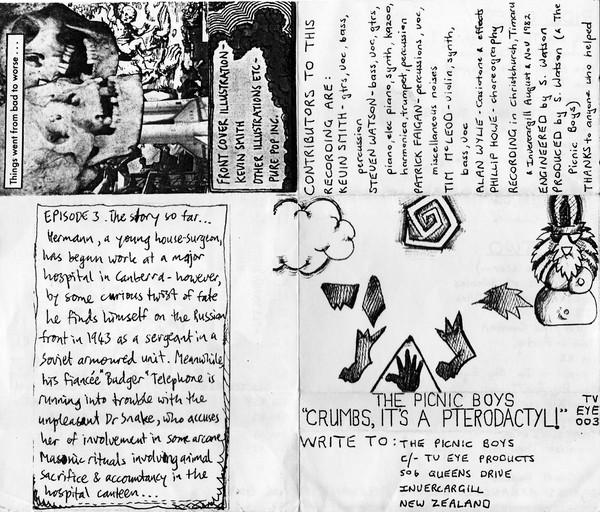 Things went from bad to worse...
FRONT COVER ILLUSTRATION-
KEVIN SMITH
OTHER ILLUSTRATIONS ETC-
PURE POP INC.
CONTRIBUTORS TO THIS
RECORDING ARE:
KEVIN SMITH - gtrs, voc, bass,
percussion
STEVEN WATSON - bass, voc, gtrs,
piano, elec piano, synth, kazoo,
harmonica, trumpet, percussion
PATRICK FAIGAN - percussions, voc,
miscellaneous noises
TIM McLEOD - violin, synth,
bass, voc
ALAN WYLIE - Casiotone & effects
PHILLIP HOWE - choreography
RECORDING in Christchurch, Timaru
& Invercargill August & Nov 1982
ENGINEERED by S. Watson
PRODUCED by S. Watson (& The
Picnic Boys)
THANKS to anyone who helped
EPISODE 3. The story so far...
Hermann, a young house-surgeon,
has begun work at a major
hospital in Canberra - however,
by some curious twist of fate
he finds himself on the Russian
front in 1943 as a sergeant in a
Soviet armoured unit. Meanwhile
his fiancée "Badger" Telephone is
running into trouble with the
unpleasant Dr Snake, who accuses
her of involvement in some arcane
Masonic rituals involving animal
sacrifice & accountancy in the
hospital canteen...
THE PICNIC BOYS
"CRUMBS, IT'S A PTERODACTYL!"
TV
EYE
003
WRITE TO: THE PICNIC BOYS
C/- TV EYE PRODUCTS
506 QUEENS DRIVE
INVERCARGILL
NEW ZEALAND